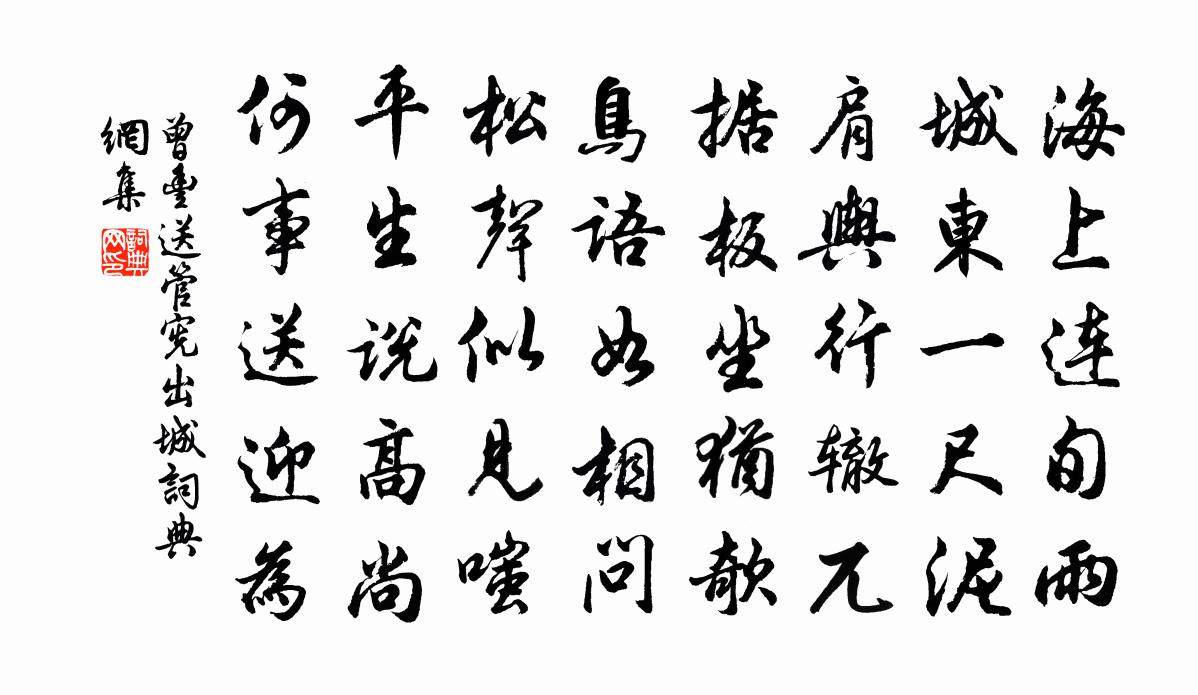 海上连旬雨
城東一尺泥
肩輿行辙兀
据板坐猶欹
鳥語如相問
松聲似見嗤
平生说高尚
何事送迎為
曾豐送管宪出城詞典
網集
詞典
网印